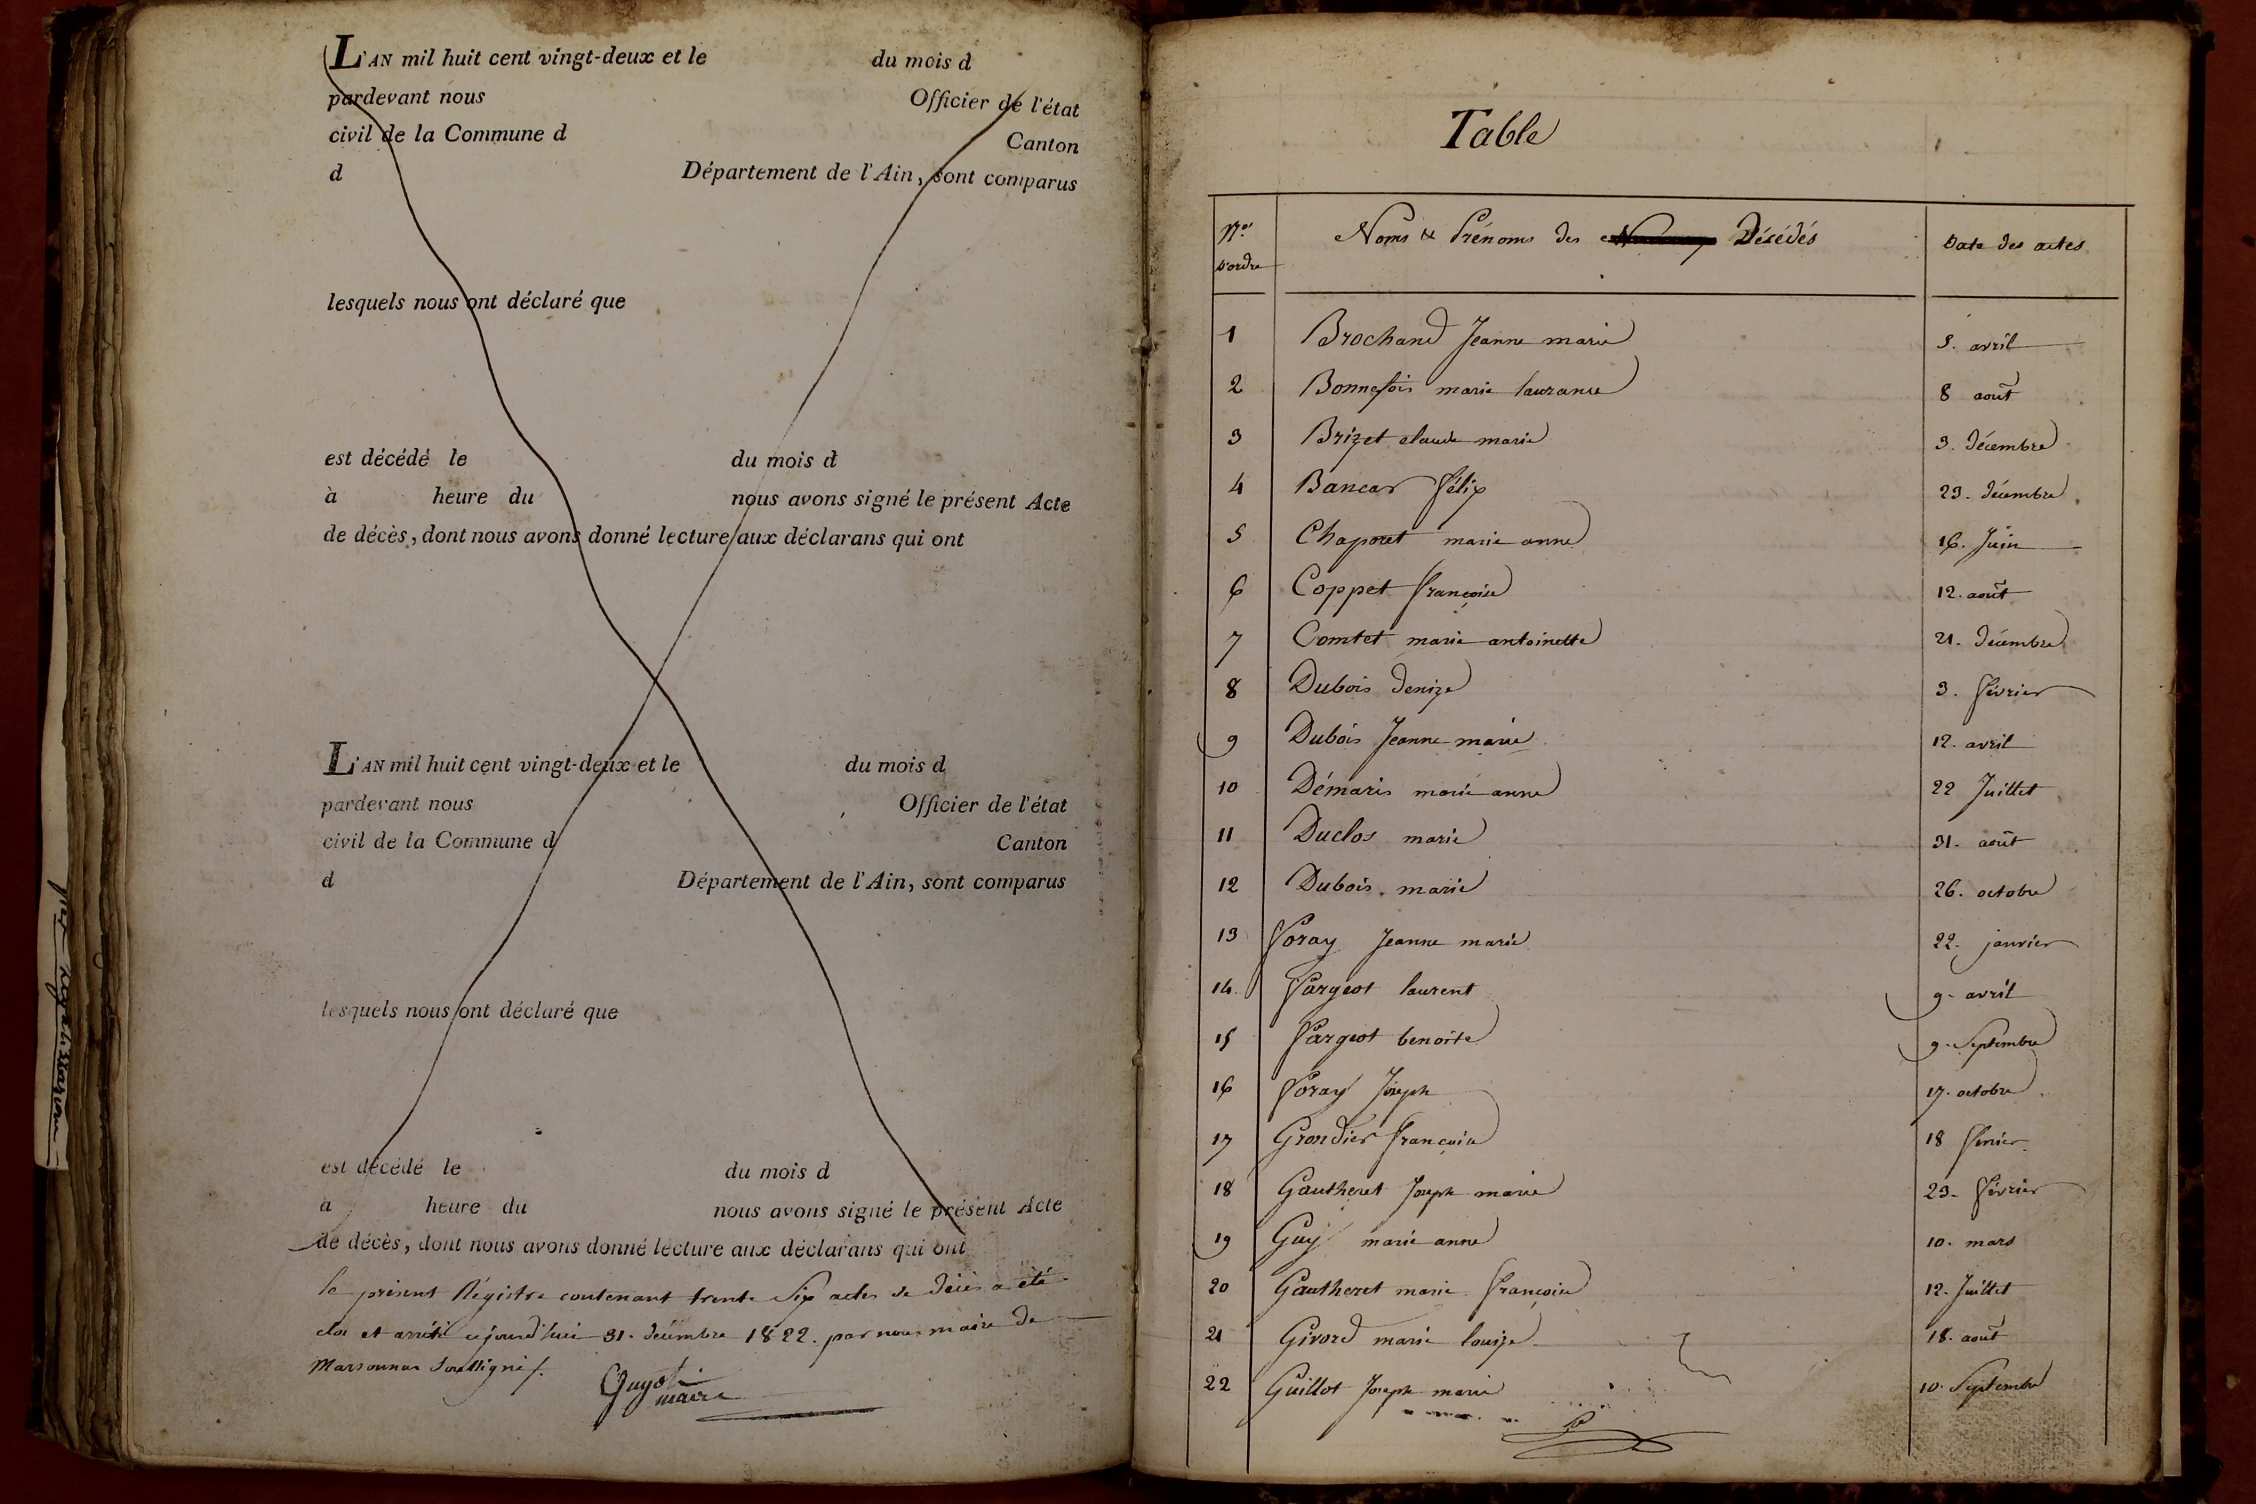 L'AN mil huit cent vingt-deux et le du mois d
pardevant nous Officier de l'état
civil de la Commune d Canton
d Département de l'Ain, sont comparus
lesquels nous ont déclaré que
est décédé le du mois d
à heure du nous avons signé le présent Acte
de décès, dont nous avons donné lecture aux déclarans qui ont
L'AN mil huit cent vingt-deux et le du mois d
pardevant nous Officier de l'état
civil de la Commune d Canton
d Département de l'Ain, sont comparus
lesquels nous ont déclaré que
est décédé le du mois d
à heure du nous avons signé le présent Acte
de décès, dont nous avons donné lecture aux déclarans qui ont
le présent Régistre contenant trente Six actes de décès a été
clos et arrêté cejourd'hui 31. décembre 1822. par nous maire de
Marsonnas Soussigné
Guyot
maire
Table
Nos d'ordre Noms & Prénoms des Décédés Date des actes
1 Brochand Jeanne marie 5. avril
2 Bonnefois marie laurance 8 août
3 Brizet claude marie 3. décembre
4 Bancar félix 23. décembre
5 Chaponet marie anne 16. Juin
6 Coppet françoise 12. août
7 Comtet marie antoinette 21. décembre
8 Dubois denize 3. février
9 Dubois Jeanne marie 12. avril
10 Démaris marie anne 22 Juillet
11 Duclos marie 31. août
12 Dubois marie 26. octobre
13 foray Jeanne marie 22. janvier
14. fargeot laurent 9. avril
15 fargeot benoite 9. Septembre
16 foray Joseph 17. octobre
17 Grondier françoise 18 février
18 Gautheret Joseph marie 23. février
19 Guy marie anne 10. mars
20 Gautheret marie françoise 12. Juillet
21 Givord marie louize 18. août
22 Guillot Joseph marie 10. Septembre